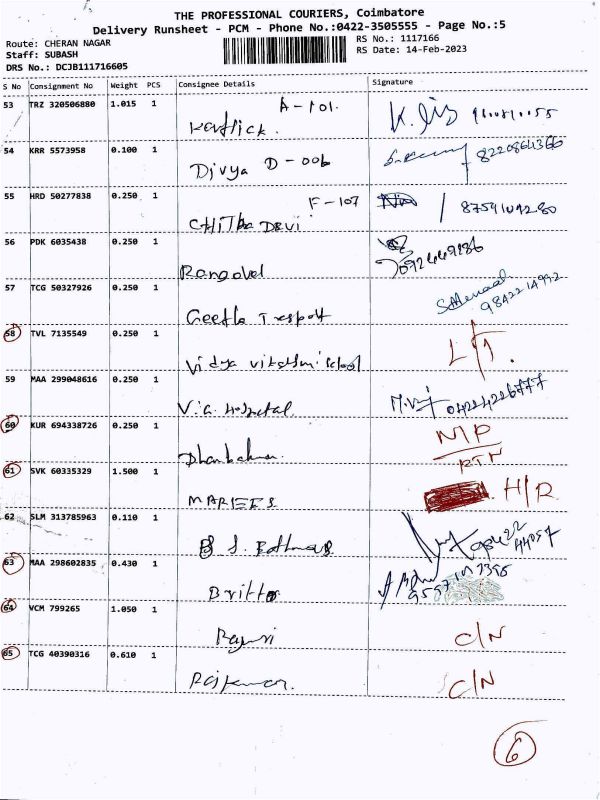 THE PROFESSIONAL COURIERS, Coimbatore
Delivery Runsheet - PCM - Phone No.:0422-3505555 - Page No.:5
Route: CHERAN NAGAR
RS No.: 1117166
Staff: SUBASH
RS Date: 14-Feb-2023
DRS No.: DCJB111716605
S No Consignment No Weight PCS Consignee Details Signature
53 TRZ 320506880 1.015 1 A-101.
Karthick.
54 KRR 5573958 0.100 1 Divya D-006 8220864366
55 HRD 50277838 0.250 1 F-107
CHITRA DEVI
56 PDK 6035438 0.250 1
57 TCG 50327926 0.250 1 9842214992
Geetha
58 TVL 7135549 0.250 1
Vidya school
59 MAA 299048616 0.250 1 04224226777
V.G. Hospital
60 KUR 694338726 0.250 1 N/P
RTN
61 SVK 60335329 1.500 1 H/R
62 SLM 313785963 0.110 1
63 MAA 298602835 0.430 1
Britto
64 VCM 799265 1.050 1 C/N
65 TCG 40390316 0.610 1
Rajkumar. C/N
6